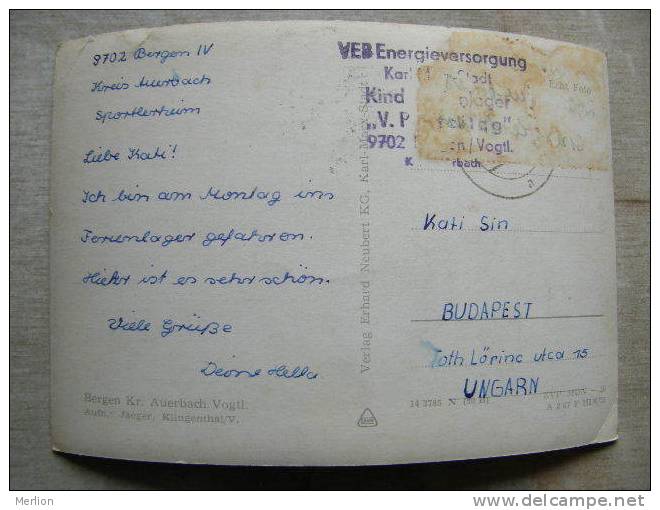 9702 Bergen IV
Kreis Auerbach
Sportlerheim
Liebe Kati!
Ich bin am Montag ins
Ferienlager gefahren.
Hier ist es sehr schön.
Viele Grüße
Deine Hella
Bergen Kr. Auerbach Vogtl.
Aufn.: Jaeger, Klingenthal/V.
Verlag Erhard Neubert KG, Karl-Marx-Stadt
VEB Energieversorgung
Karl Stadt
Kind lager
„V. P
9702 /Vogtl.
Echt Foto
Kati Sin
BUDAPEST
Toth Lörinc utca 15
UNGARN
14 3785 N
Merlion
http://www.delcampe.net